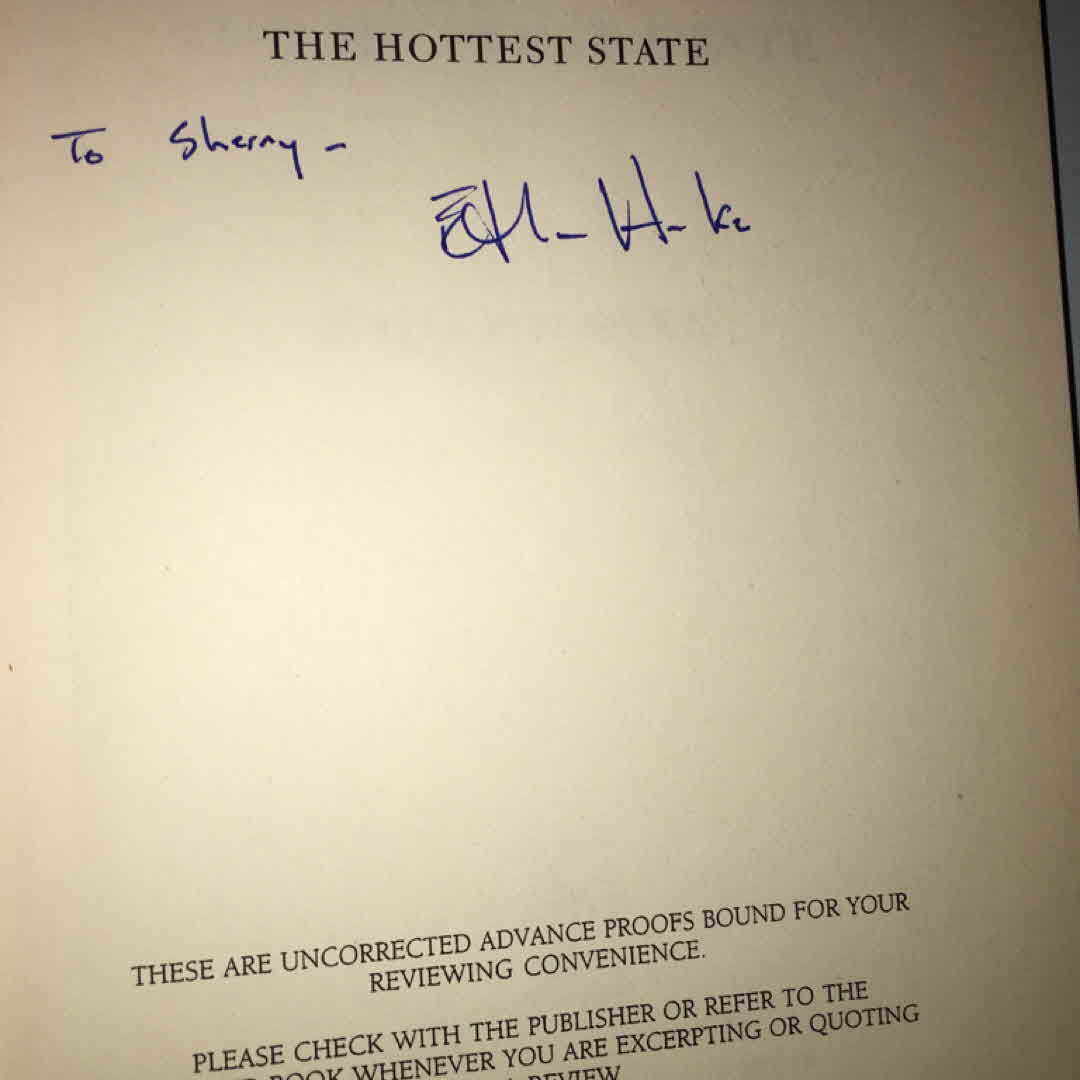 THE HOTTEST STATE
To Sherry -
Ethan Hawke
THESE ARE UNCORRECTED ADVANCE PROOFS BOUND FOR YOUR
REVIEWING CONVENIENCE.
PLEASE CHECK WITH THE PUBLISHER OR REFER TO THE
BOOK WHENEVER YOU ARE EXCERPTING OR QUOTING
REVIEW